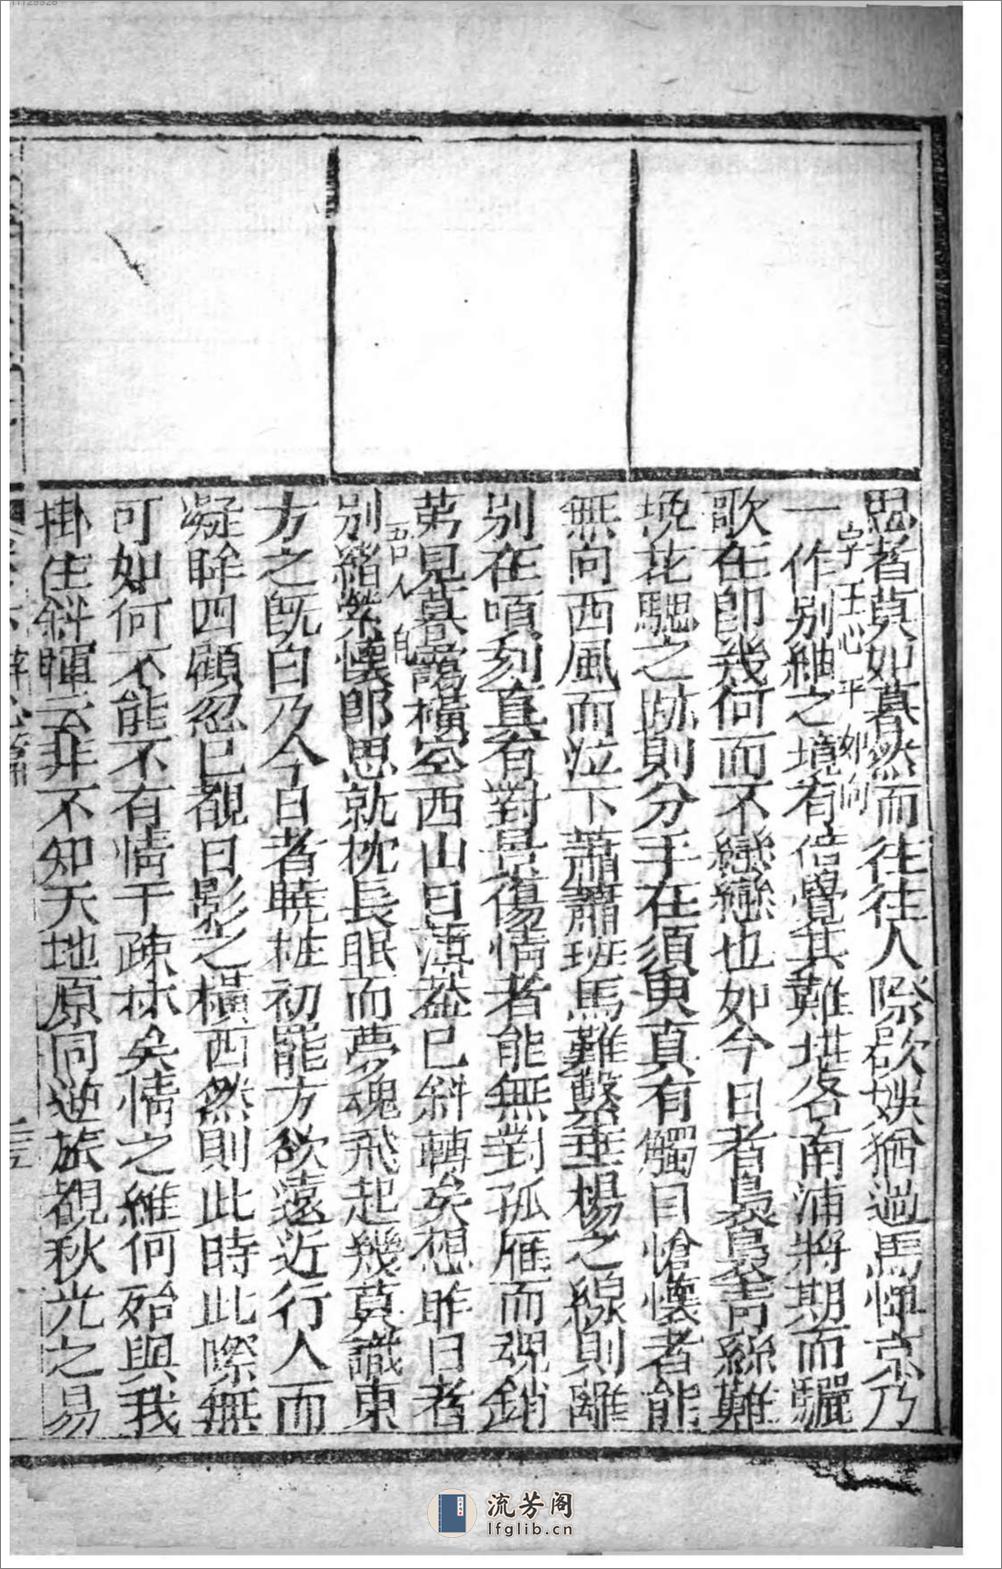 思者莫如暮然而往往人際欲娛猶過馬憚京乃
一作別紬之境有倍覺其難堪各南浦將期而驪
歌在即幾何而不戀戀也如今日者裊裊青絲難
挽花驄之跡則分手在須臾真有觸目愴懷者能
無向西風而泣下蕭蕭班馬難繫垂楊之線則離
別在頃刻直有對景傷情者能無對孤雁而魂銷
第見暮靄橫空西山日薄蓋已斜轉矣想昨日者
吾人
別緒縈懷即思就枕長眠而夢魂飛起幾莫識東
方之既白及今日者曉粧初罷方欲遠近行人而
凝眸四顧忽已覩日影之橫西然則此時此際無
可如何不能不有情于疎林矣情之維何殆與我
掛住斜暉云非不知天地原同逆旅觀秋光之易
流芳阁
lfglib.cn